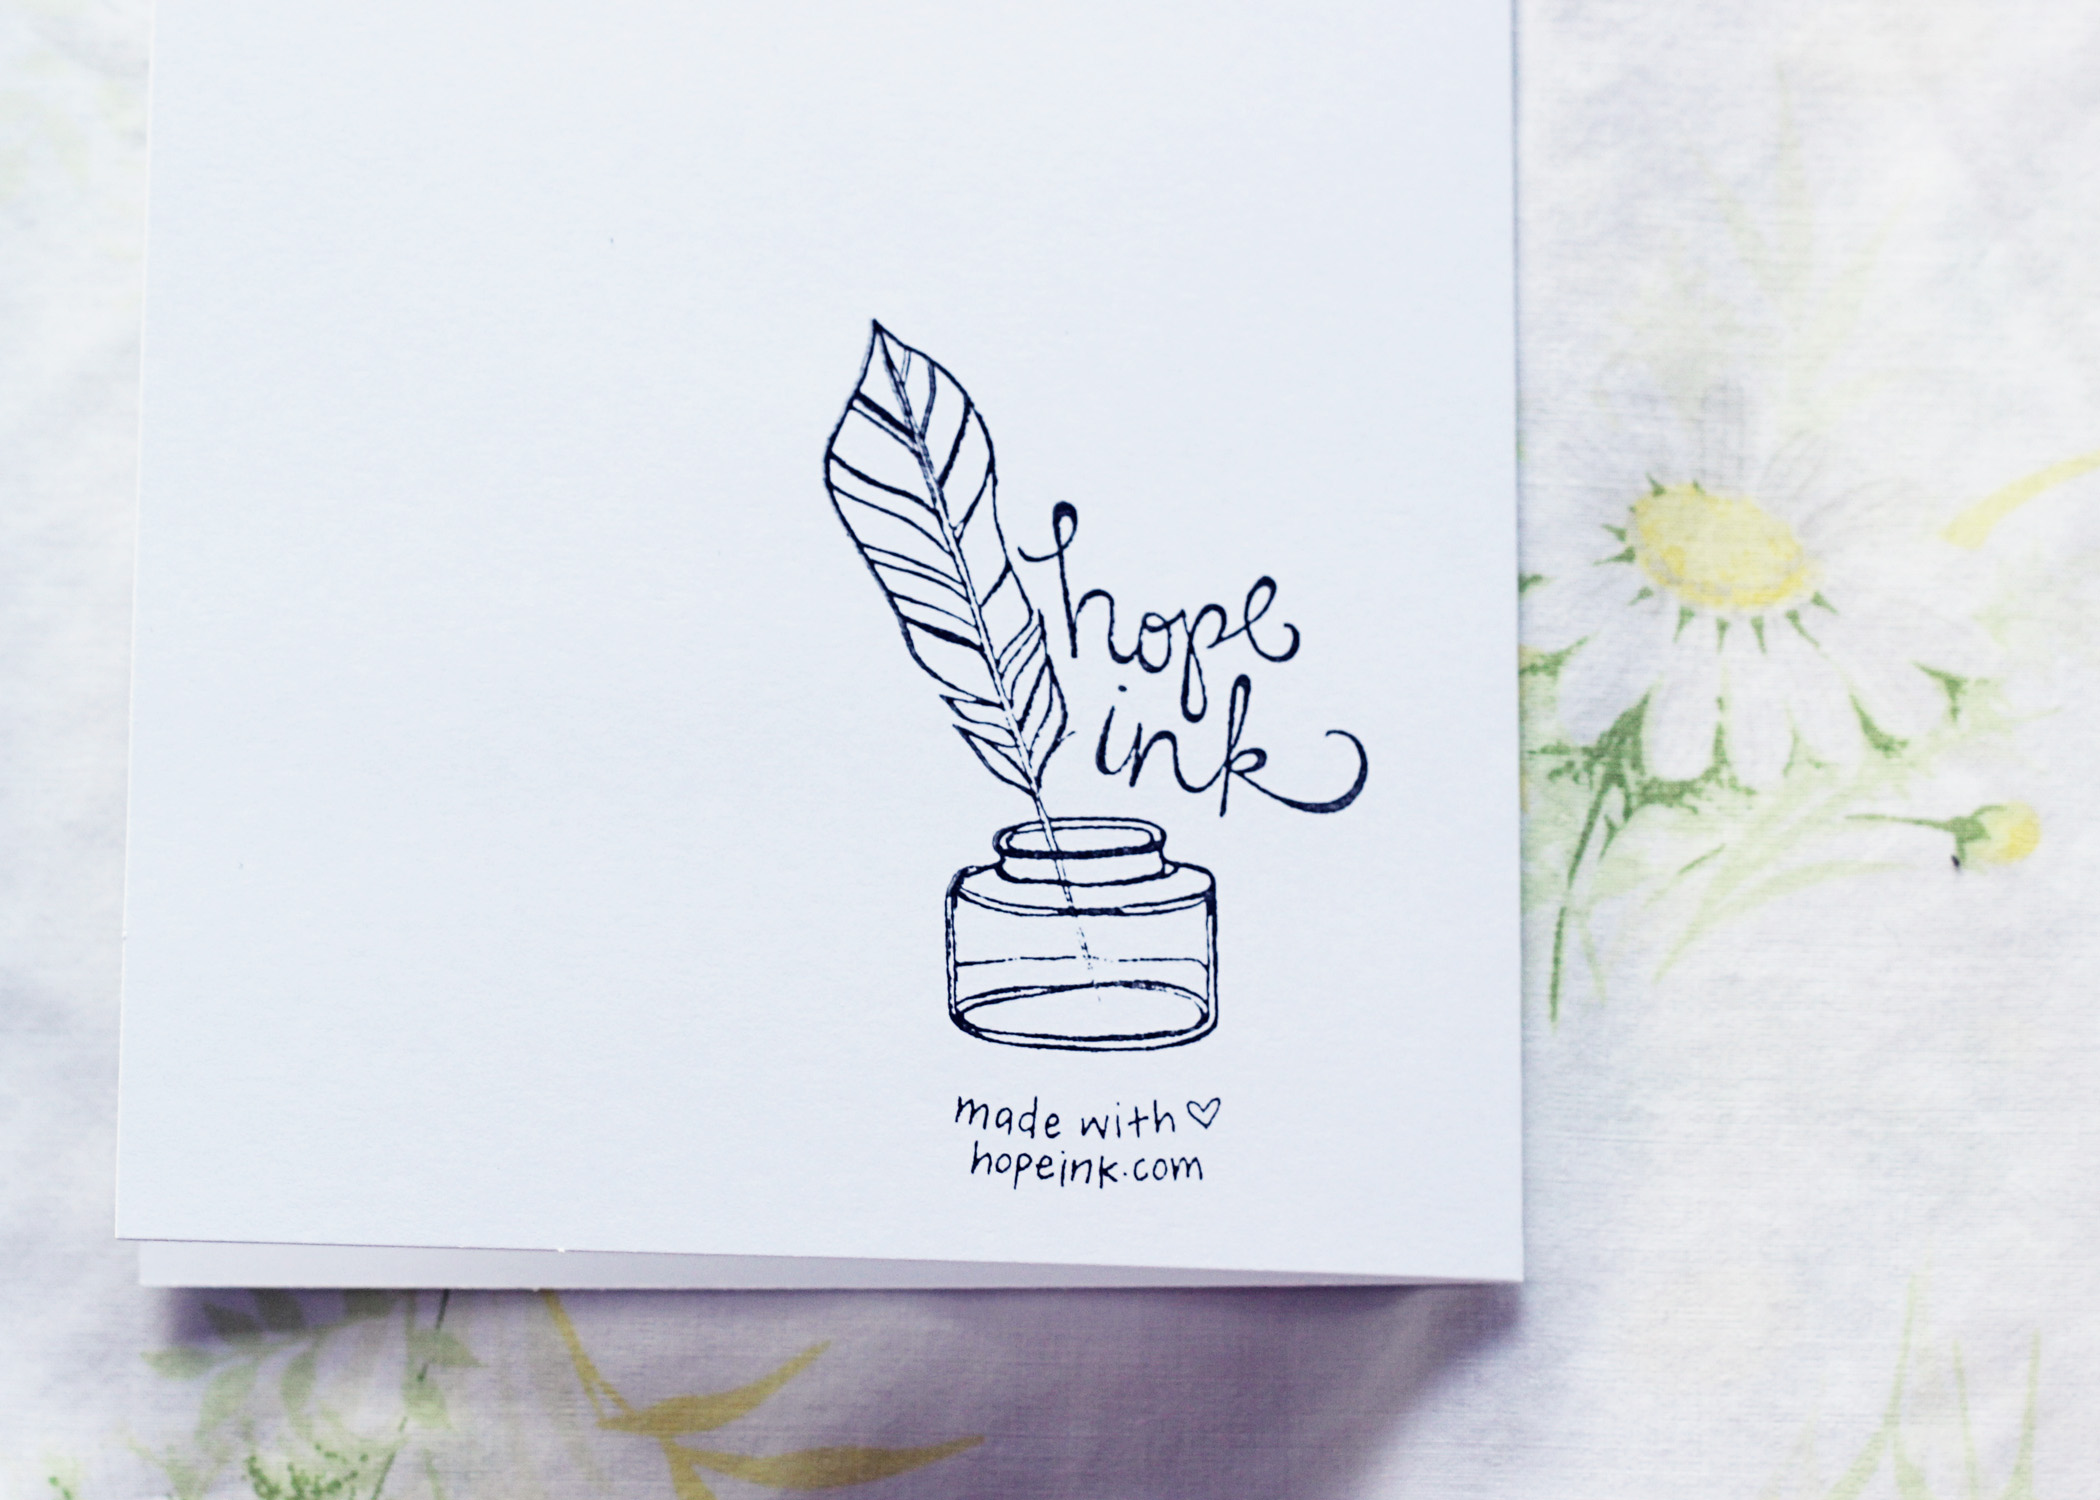 hope
ink
made with ♡
hopeink.com